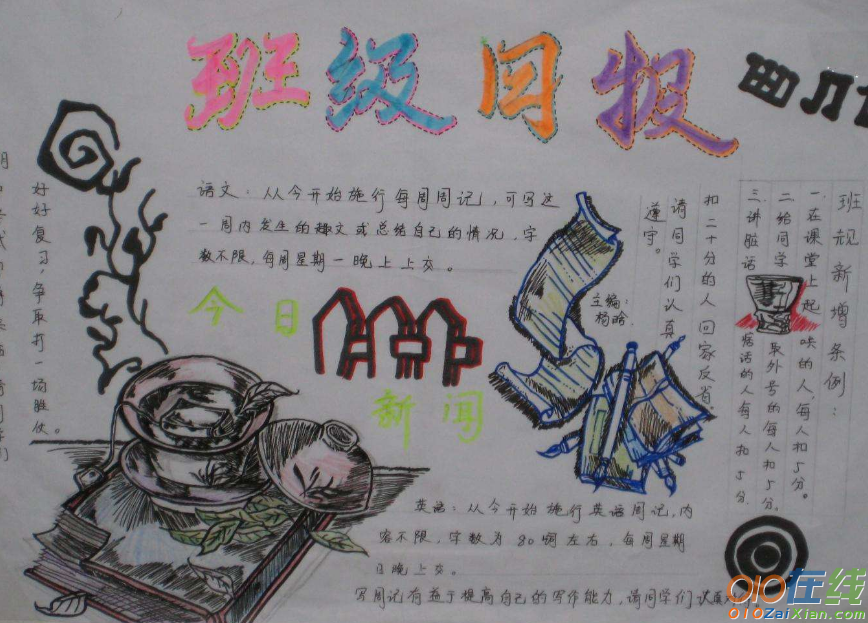 班级日报
语文：从今开始施行每周周记，可写这
一周内发生的趣文或总结自己的情况，字
数不限，每周星期一晚上上交。
今日
新闻
主编：
杨晗
好好复习，争取打一场胜仗。
班规新增条例：
一.在课堂上起哄的人，每人扣5分。
二.给同学取外号的每人扣5分，
三.讲脏话 的人每人扣5分.
扣二十分的人回家反省
请同学们认真
遵守。
英语：从今开始施行英语周记，内
容不限，字数为80词左右，每周星期
日晚上交。
写周记有益于提高自己的写作能力，请同学们认真
010在线
010ZaiXian.com